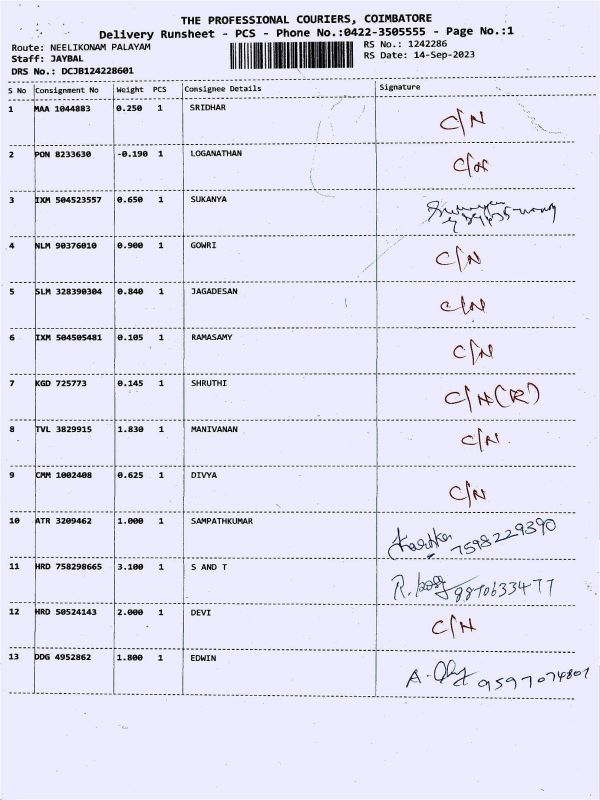 THE PROFESSIONAL COURIERS, COIMBATORE
Delivery Runsheet - PCS - Phone No.:0422-3505555 - Page No.:1
Route: NEELIKONAM PALAYAM RS No.: 1242286
Staff: JAYBAL RS Date: 14-Sep-2023
DRS No.: DCJB124228601
S No Consignment No Weight PCS Consignee Details Signature
1 MAA 1044883 0.250 1 SRIDHAR C/N
2 PON 8233630 -0.190 1 LOGANATHAN C/N
3 IXM 504523557 0.650 1 SUKANYA
4 NLM 90376010 0.900 1 GOWRI C/N
5 SLM 328390304 0.840 1 JAGADESAN C/N
6 IXM 504505481 0.105 1 RAMASAMY C/N
7 KGD 725773 0.145 1 SHRUTHI C/N (R)
8 TVL 3829915 1.830 1 MANIVANAN C/N
9 CMM 1002408 0.625 1 DIVYA C/N
10 ATR 3209462 1.000 1 SAMPATHKUMAR 7598229390
11 HRD 758298665 3.100 1 S AND T R. 9870633477
12 HRD 50524143 2.000 1 DEVI C/N
13 DDG 4952862 1.800 1 EDWIN A. 9597074807